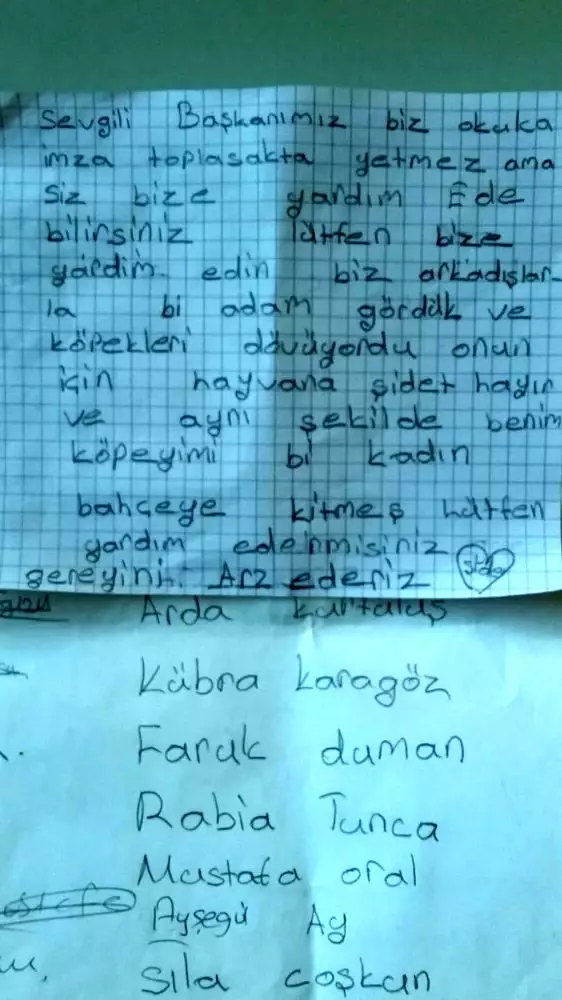 Sevgili Başkanımız biz okuka
imza toplasakta yetmez ama
siz bize yardım Ede
bilirsiniz lütfen bize
yardım edin biz arkadışlar-
la bi adam gördük ve
köpekleri dövüyordu onun
için hayvana şidet hayır
ve aynı şekilde benim
köpeyimi bi kadın
bahçeye kitmeş lütfen
yardım edermisiniz
gereyini. Arz ederiz
Arda kurtuluş
Kübra karagöz
Faruk duman
Rabia Tunca
Mustafa oral
Ayşegü Ay
Sıla coşkun